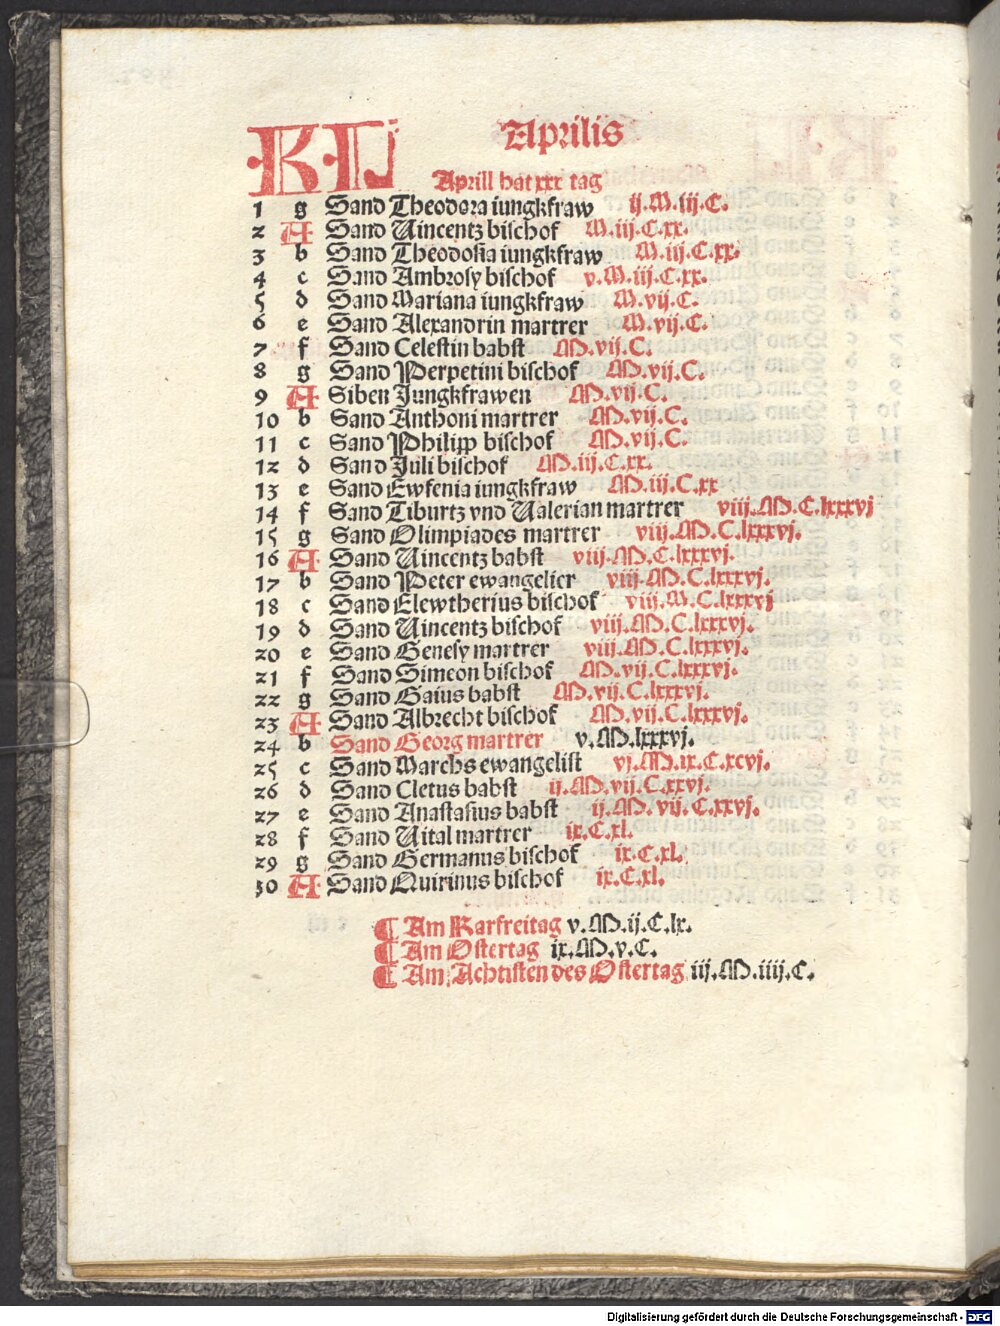 KL Aprilis
Aprill hat xxx tag
1 g Sand Theodora iungkfraw ij.M.iij.C.
2 A Sand Uincentz bischof M.iij.C.xx.
3 b Sand Theodosia iungkfraw M.iij.C.xx.
4 c Sand Ambrosy bischof v.M.iij.C.xx.
5 d Sand Mariana iungkfraw M.vij.C.
6 e Sand Alexandrin martrer M.vij.C.
7 f Sand Celestin babst M.vij.C.
8 g Sand Perpetini bischof M.vij.C.
9 A Siben Jungkfrawen M.vij.C.
10 b Sand Anthoni martrer M.vij.C.
11 c Sand Philipp bischof M.vij.C.
12 d Sand Juli bischof M.iij.C.xx.
13 e Sand Ewfenia iungkfraw M.iij.C.xx
14 f Sand Tiburtz vnd Ualerian martrer viij.M.C.lxxxvj
15 g Sand Olimpiades martrer viij.M.C.lxxxvj.
16 A Sand Uincentz babst viij.M.C.lxxxvj.
17 b Sand Peter ewangelier viij.M.C.lxxxvj.
18 c Sand Elewtherius bischof viij.M.C.lxxxvj
19 d Sand Uincentz bischof viij.M.C.lxxxvj.
20 e Sand Genesy martrer viij.M.C.lxxxvj.
21 f Sand Simeon bischof M.vij.C.lxxxvj.
22 g Sand Gaius babst M.vij.C.lxxxvj.
23 A Sand Albrecht bischof M.vij.C.lxxxvj.
24 b Sand Georg martrer v.M.lxxxvj.
25 c Sand Marchs ewangelist vj.M.ix.C.xcvj.
26 d Sand Cletus babst ij.M.vij.C.xxvj.
27 e Sand Anastasius babst ij.M.vij.C.xxvj.
28 f Sand Uital martrer ix.C.xl.
29 g Sand Germanus bischof ix.C.xl.
30 A Sand Quirinus bischof ix.C.xl.
¶ Am Karfreitag v.M.ij.C.lx.
¶ Am Ostertag ix.M.v.C.
¶ Am Achtisten des Ostertag iij.M.iiij.C.
Digitalisierung gefördert durch die Deutsche Forschungsgemeinschaft - DFG